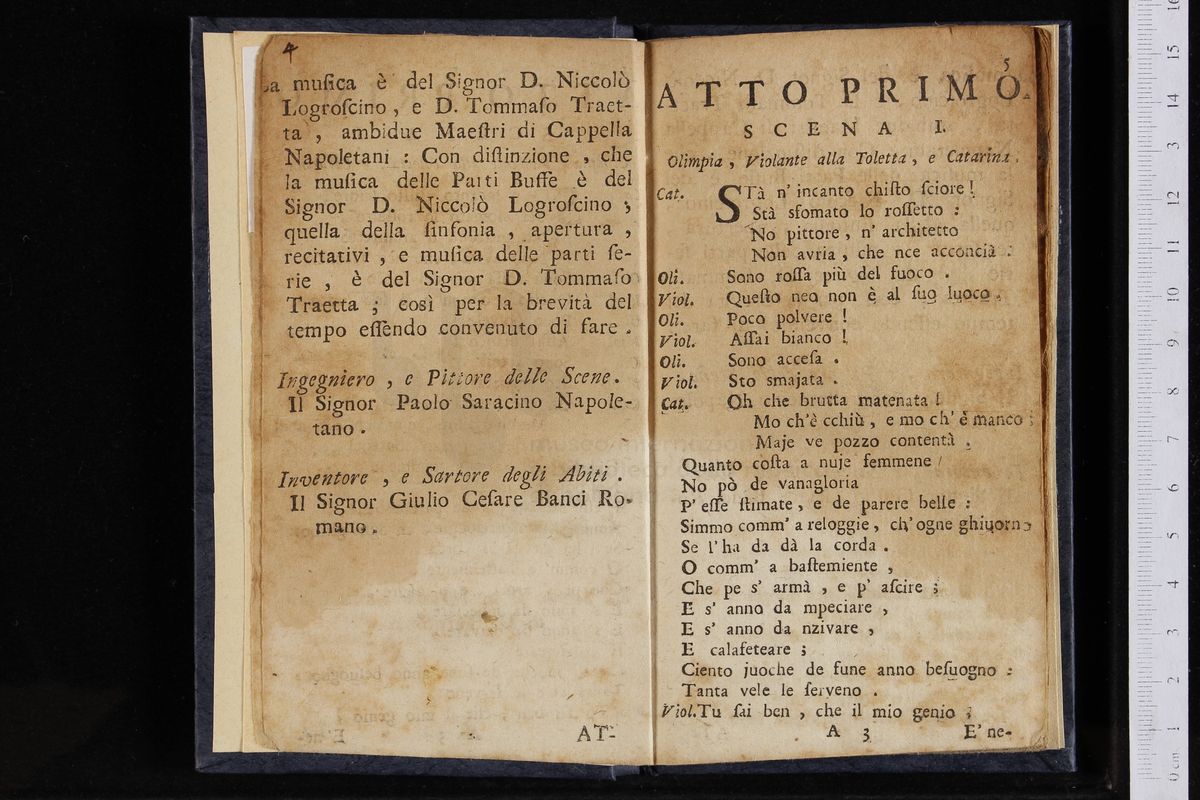 4
La muſica è del Signor D. Niccolò
Logroſcino , e D. Tommaſo Traet-
ta , ambidue Maeſtri di Cappella
Napoletani : Con diſtinzione , che
la muſica delle Parti Buffe è del
Signor D. Niccolò Logroſcino ;
quella della ſinfonia , apertura ,
recitativi , e muſica delle parti ſe-
rie , è del Signor D. Tommaſo
Traetta ; così per la brevità del
tempo eſſendo convenuto di fare .
Ingegniero , e Pittore delle Scene .
Il Signor Paolo Saracino Napole-
tano .
Inventore , e Sartore degli Abiti .
Il Signor Giulio Ceſare Banci Ro-
mano .
AT-
5
ATTO PRIMO.
SCENA I.
Olimpia , Violante alla Toletta , e Catarina .
Cat. STà n' incanto chiſto ſciore !
Stà sfomato lo roſſetto :
No pittore , n' architetto
Non avria , che nce acconcià :
Oli. Sono roſſa più del fuoco .
Viol. Queſto neo non è al ſuo luoco .
Oli. Poco polvere !
Viol. Aſſai bianco !
Oli. Sono acceſa .
Viol. Sto smajata .
Cat. Oh che brutta matenata !
Mo ch'è cchiù , e mo ch' è manco ;
Maje ve pozzo contentà .
Quanto coſta a nuje femmene
No pò de vanagloria
P' eſſe ſtimate , e de parere belle :
Simmo comm' a reloggie , ch' ogne ghiuorno
Se l' ha da dà la corda .
O comm' a baſtemiente ,
Che pe s' armà , e p' aſcire ;
E s' anno da mpeciare ,
E s' anno da nzivare ,
E calafeteare ;
Ciento juoche de fune anno beſuogno :
Tanta vele le ſerveno .
Viol.Tu ſai ben , che il mio genio ;
A 3 E' ne-
0 cm 1 2 3 4 5 6 7 8 9 10 11 12 13 14 15 16